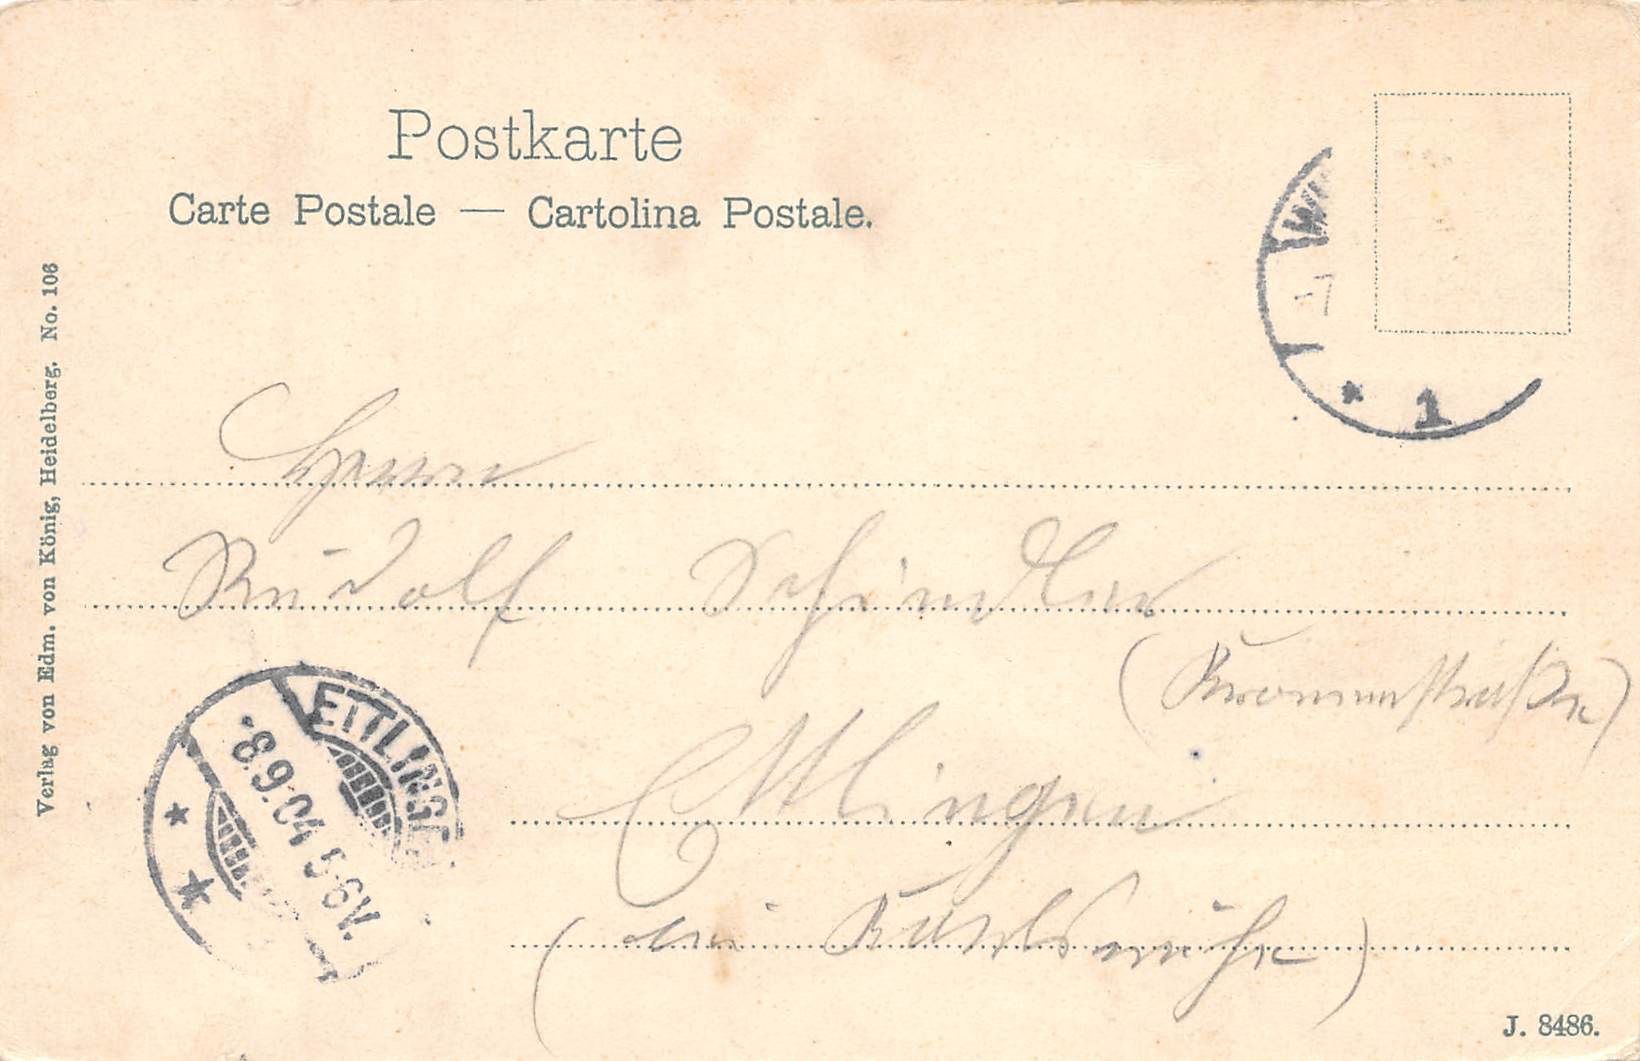 Postkarte
Carte Postale — Cartolina Postale.
Verlag von Edm. von König, Heidelberg. No. 106
W
-7
* 1
Herrn
Rudolf Schindler
(Kronenstraße)
Ettlingen
(bei Karlsruhe)
ETTLINGE
-8.9.04 5-6V.
* *
J. 8486.